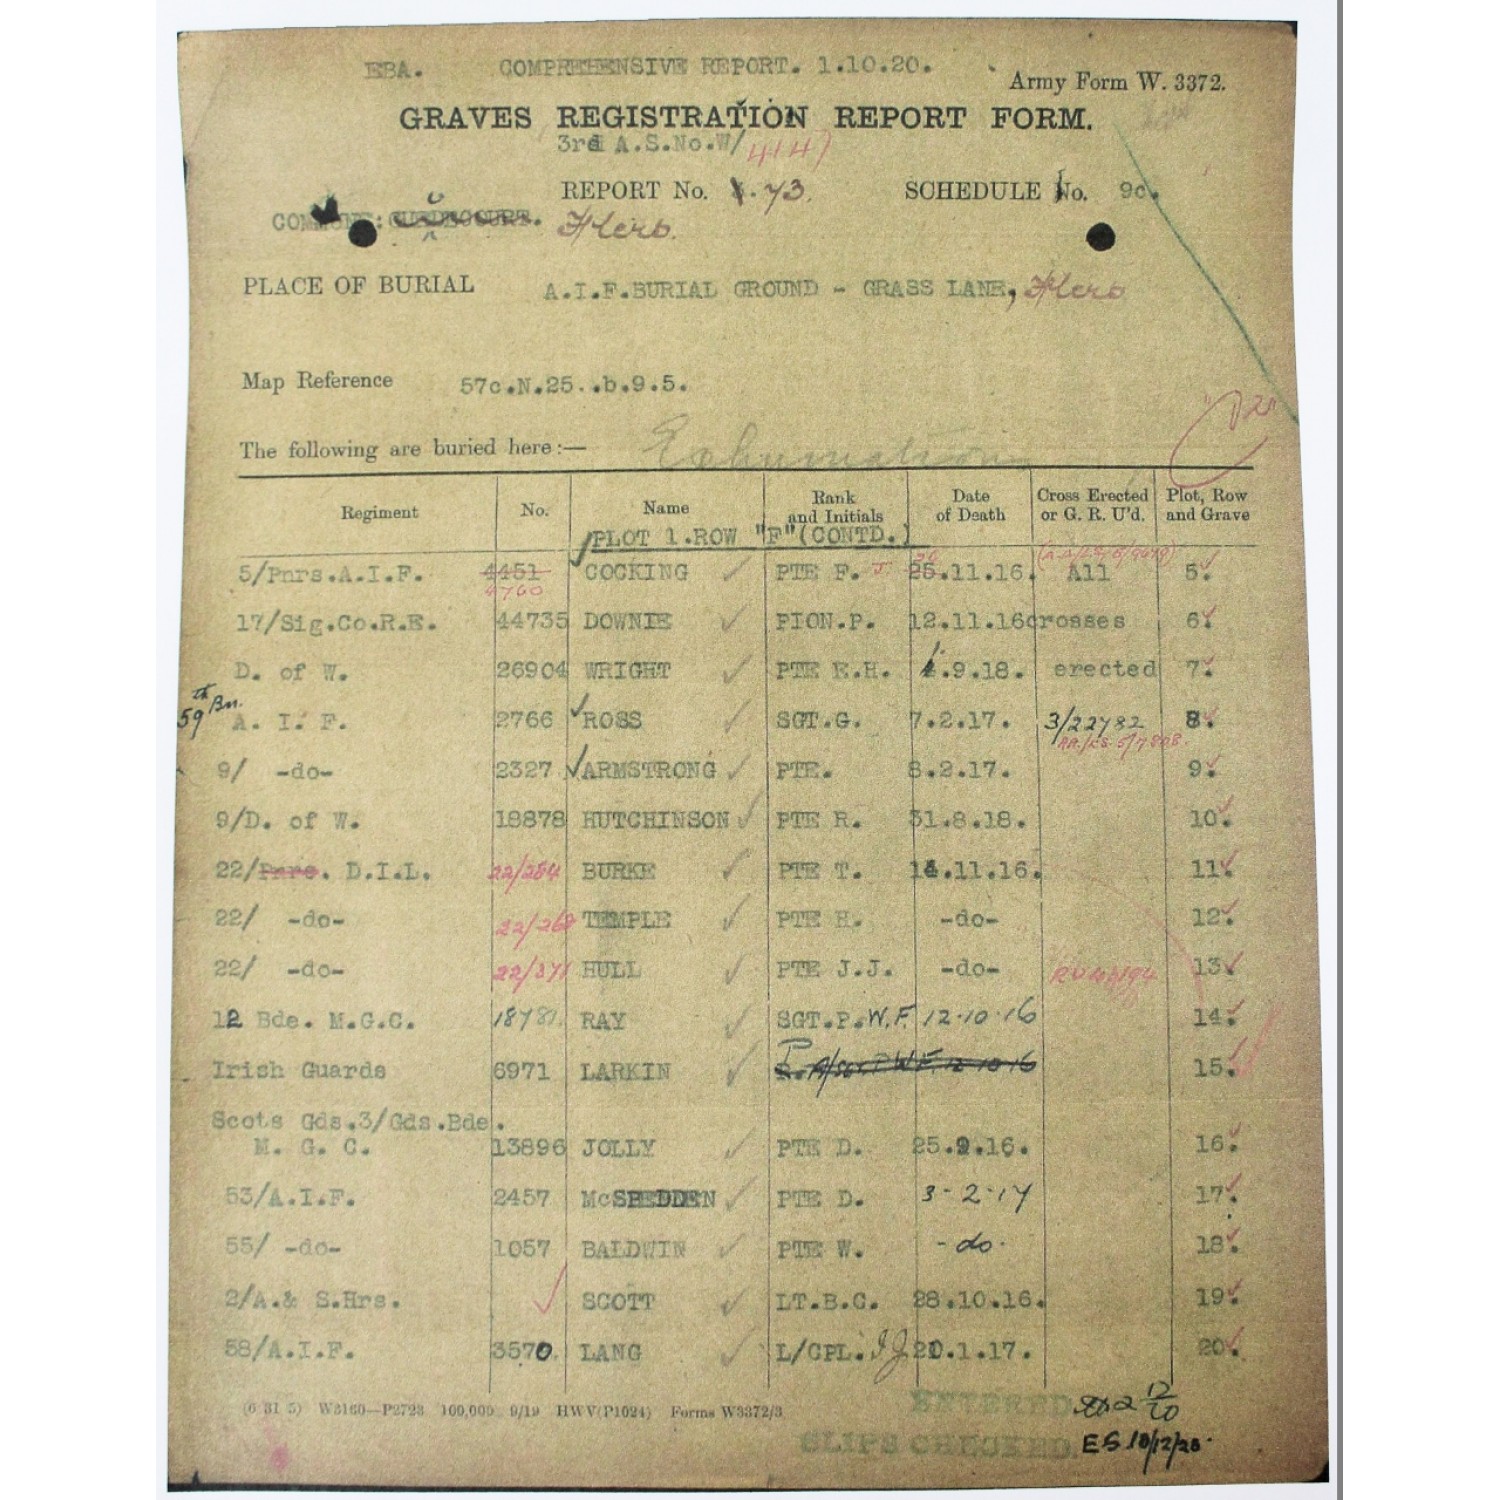 EBA. COMPREHENSIVE REPORT. 1.10.20.
Army Form W. 3372.
GRAVES REGISTRATION REPORT FORM.
3rd A.S.No.W/ 4147
REPORT No. 73. SCHEDULE No. 9c.
Flers.
PLACE OF BURIAL A.I.F.BURIAL GROUND - GRASS LANE, Flers
Map Reference 57c.N.25..b.9.5.
The following are buried here:— Exhumation
Regiment No. Name Rank and Initials Date of Death Cross Erected or G. R. U'd. Plot, Row and Grave
PLOT 1.ROW "F"(CONTD.)
5/Pnrs.A.I.F. 4451 4760 COCKING PTE F. J .11.16. All 5.
17/Sig.Co.R.E. 44735 DOWNIE PION.P. 12.11.16 crosses 6.
D. of W. 26904 WRIGHT PTE E.H. 1.9.18. erected 7.
59th Bn. A. I. F. 2766 ROSS SGT.G. 7.2.17. 3/22782 8.
9/ -do- 2327 ARMSTRONG PTE. 8.2.17. 9.
9/D. of W. 18878 HUTCHINSON PTE R. 31.8.18. 10.
22/Pnrs. D.I.L. 22/284 BURKE PTE T. .11.16. 11.
22/ -do- 22/268 TEMPLE PTE H. -do- 12.
22/ -do- 22/371 HULL PTE J.J. -do- 13.
12 Bde. M.G.C. 18781. RAY SGT.P. W.F. 12.10.16 14.
Irish Guards 6971 LARKIN P. A/Sgt. P W F. 12 10 16 15.
Scots Gds.3/Gds.Bde.
M. G. C. 13896 JOLLY PTE D. 25.9.16. 16.
53/A.I.F. 2457 McSPEDDEN PTE D. 3-2-17 17.
55/ -do- 1057 BALDWIN PTE W. -do- 18.
2/A.& S.Hrs. SCOTT LT.B.C. 28.10.16. 19.
58/A.I.F. 3570. LANG L/CPL. I J .1.17. 20.
(6 31 5) W3160—P2723 100,000 9/19 HWV(P1024) Forms W3372/3
ENTERED 2 12/20
SLIPS CHECKED. ES 10/12/20.